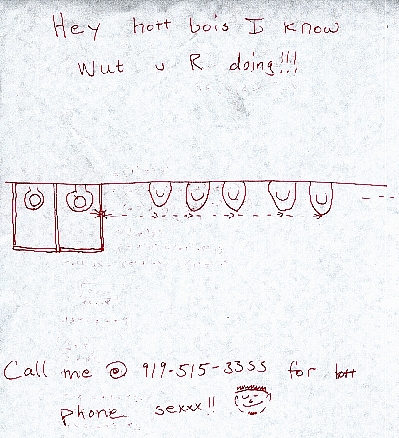 Hey hott bois I know
Wut u R doing!!!
Call me @ 919-515-3355 for hott
phone sexxx!!